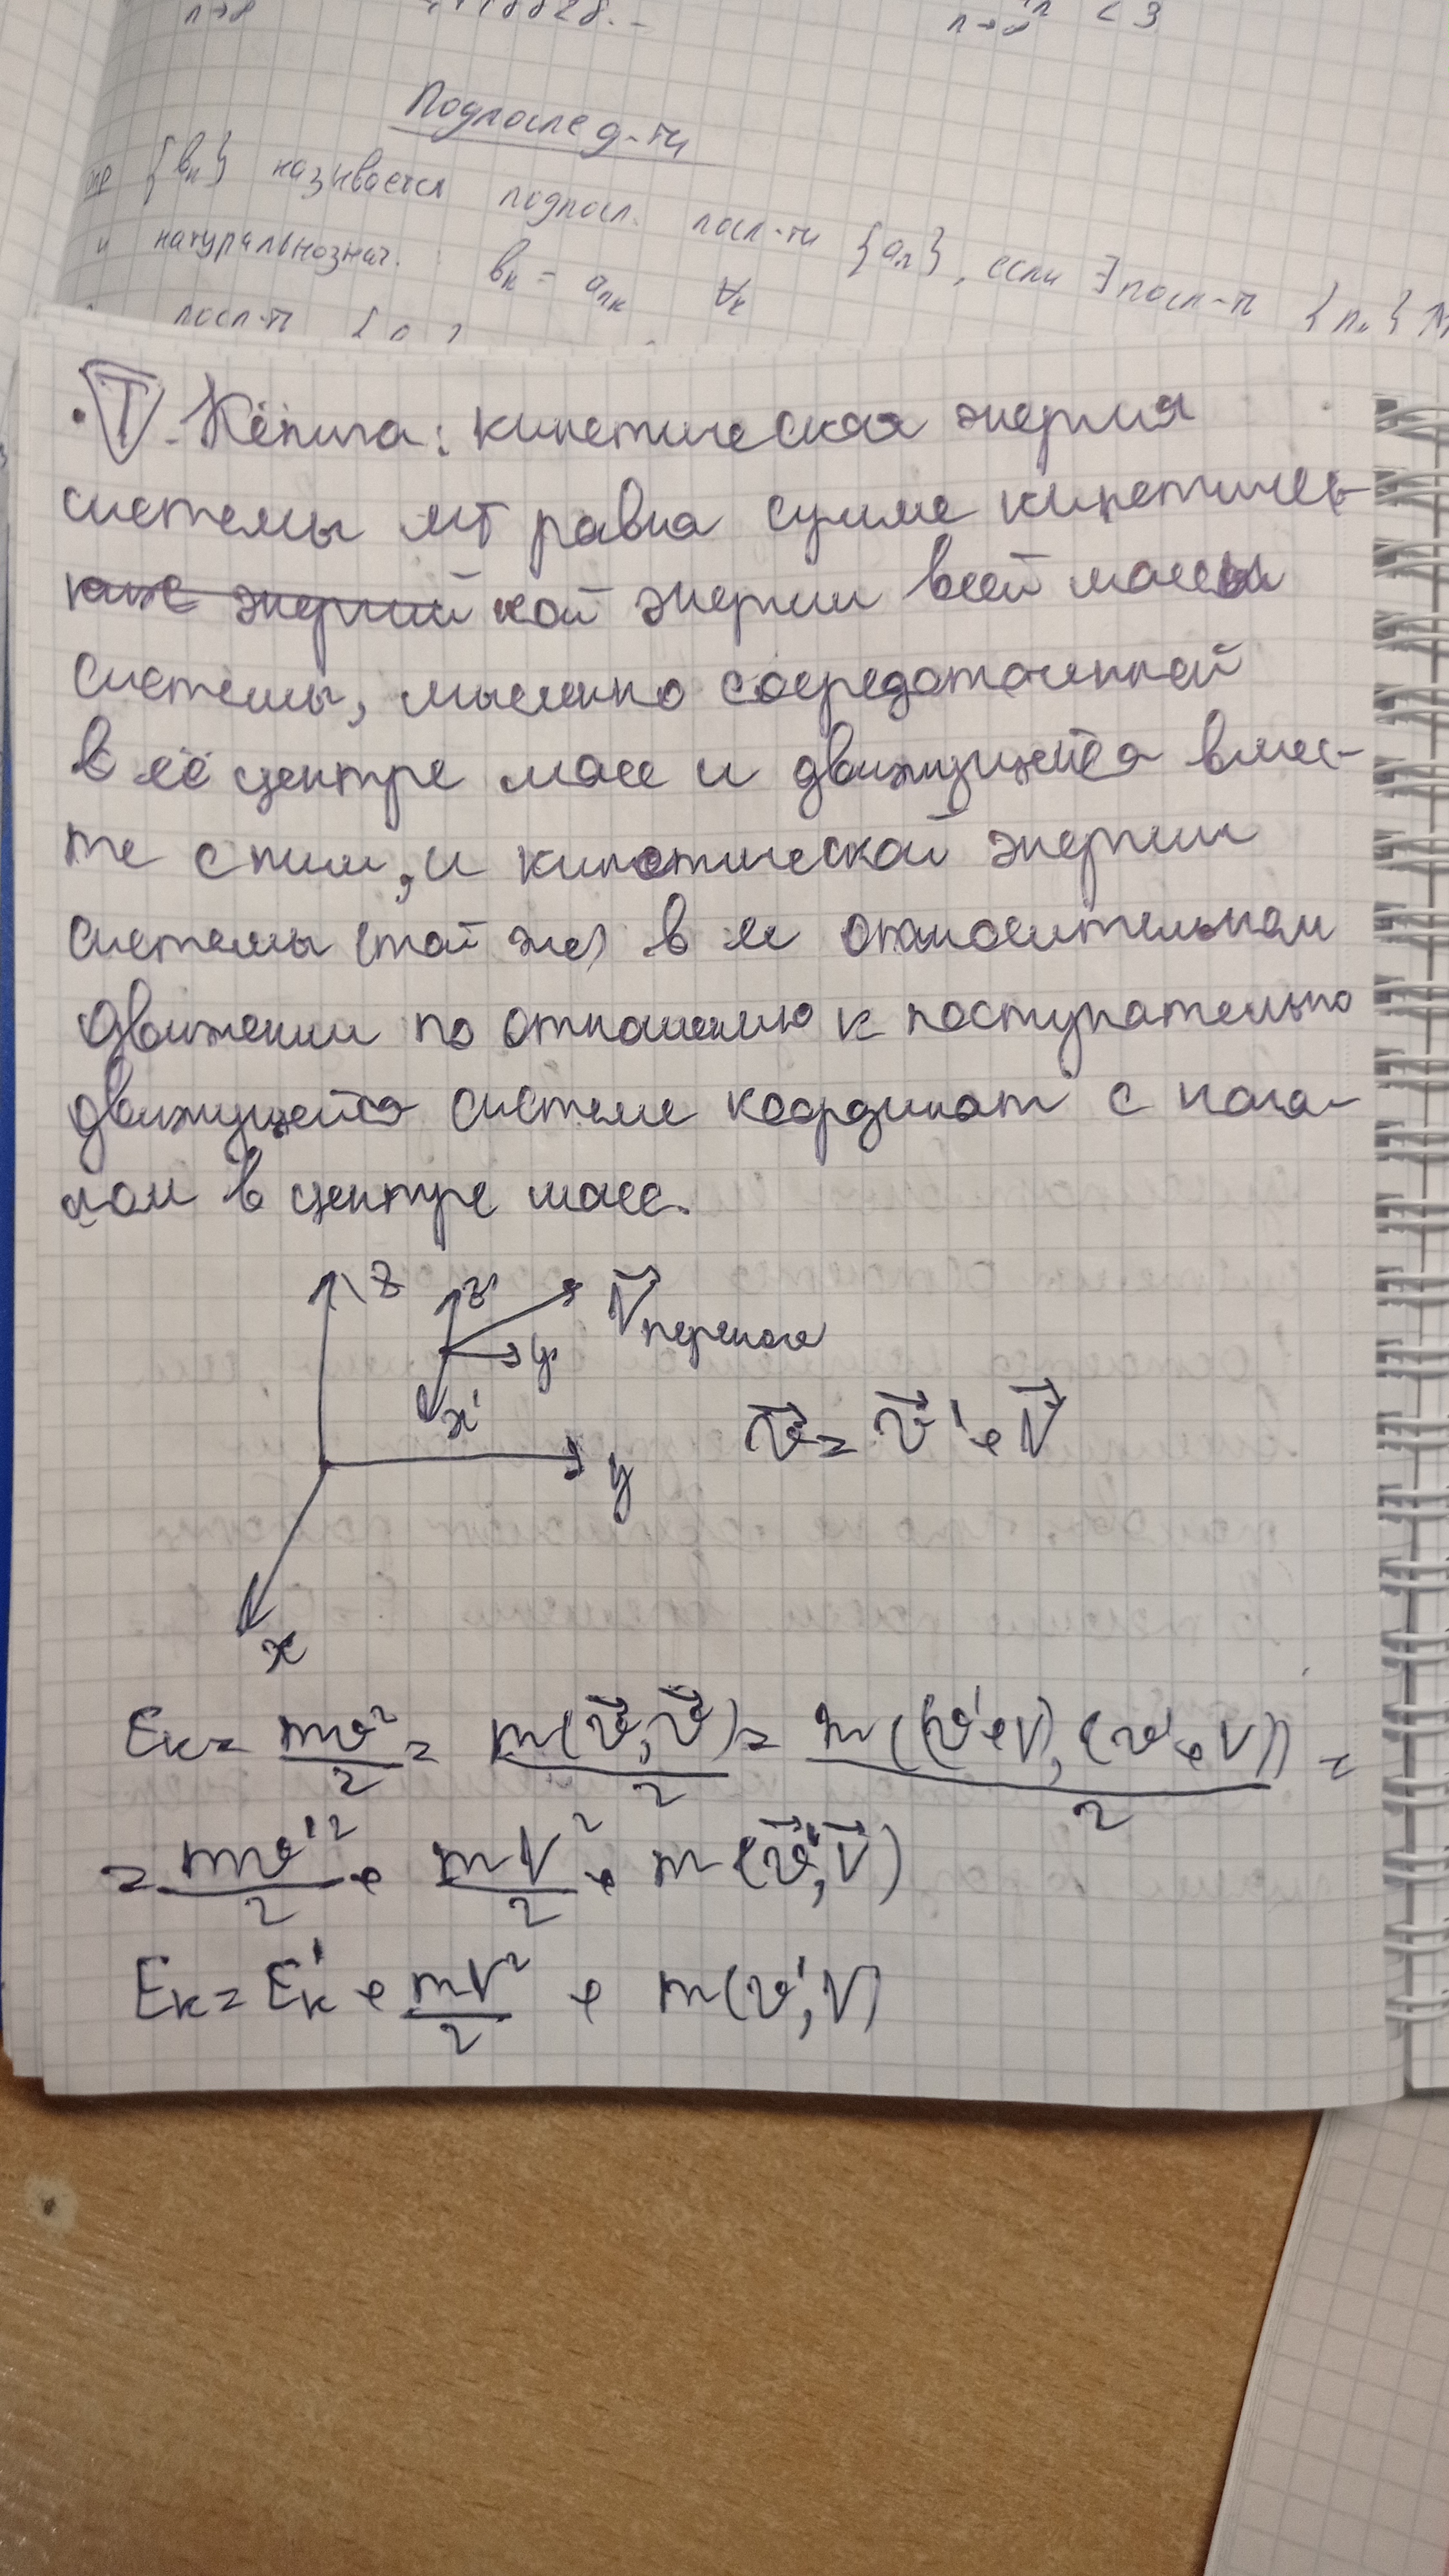 n→∞
n→∞ < 3
Подпослед-ти
{bₖ} называется подпосл. посл-ти {aₙ}, если ∃ посл-ть
и натуральнознач. : bₖ = aₙₖ ∀ₖ
посл-ть
· T. Кёнига: кинетическая энергия
системы МТ равна сумме кинетичес-
кой энергии всей массы
системы, мысленно сосредоточенной
в её центре масс и движущейся вмес-
те с ним, и кинетической энергии
системы (той же) в её относительном
движении по отношению к поступательно
движущейся системе координат с нача-
лом в центре масс.
z z' V⃗переноса
y'
x' v⃗ = v⃗' + V⃗
y
x
Eк = mv²/2 = m(v⃗, v⃗)/2 = m((v'+V), (v'+V))/2 =
= mv'²/2 + mV²/2 + m(v⃗', V⃗)
Eк = Eк' + mV²/2 + m(v', V)